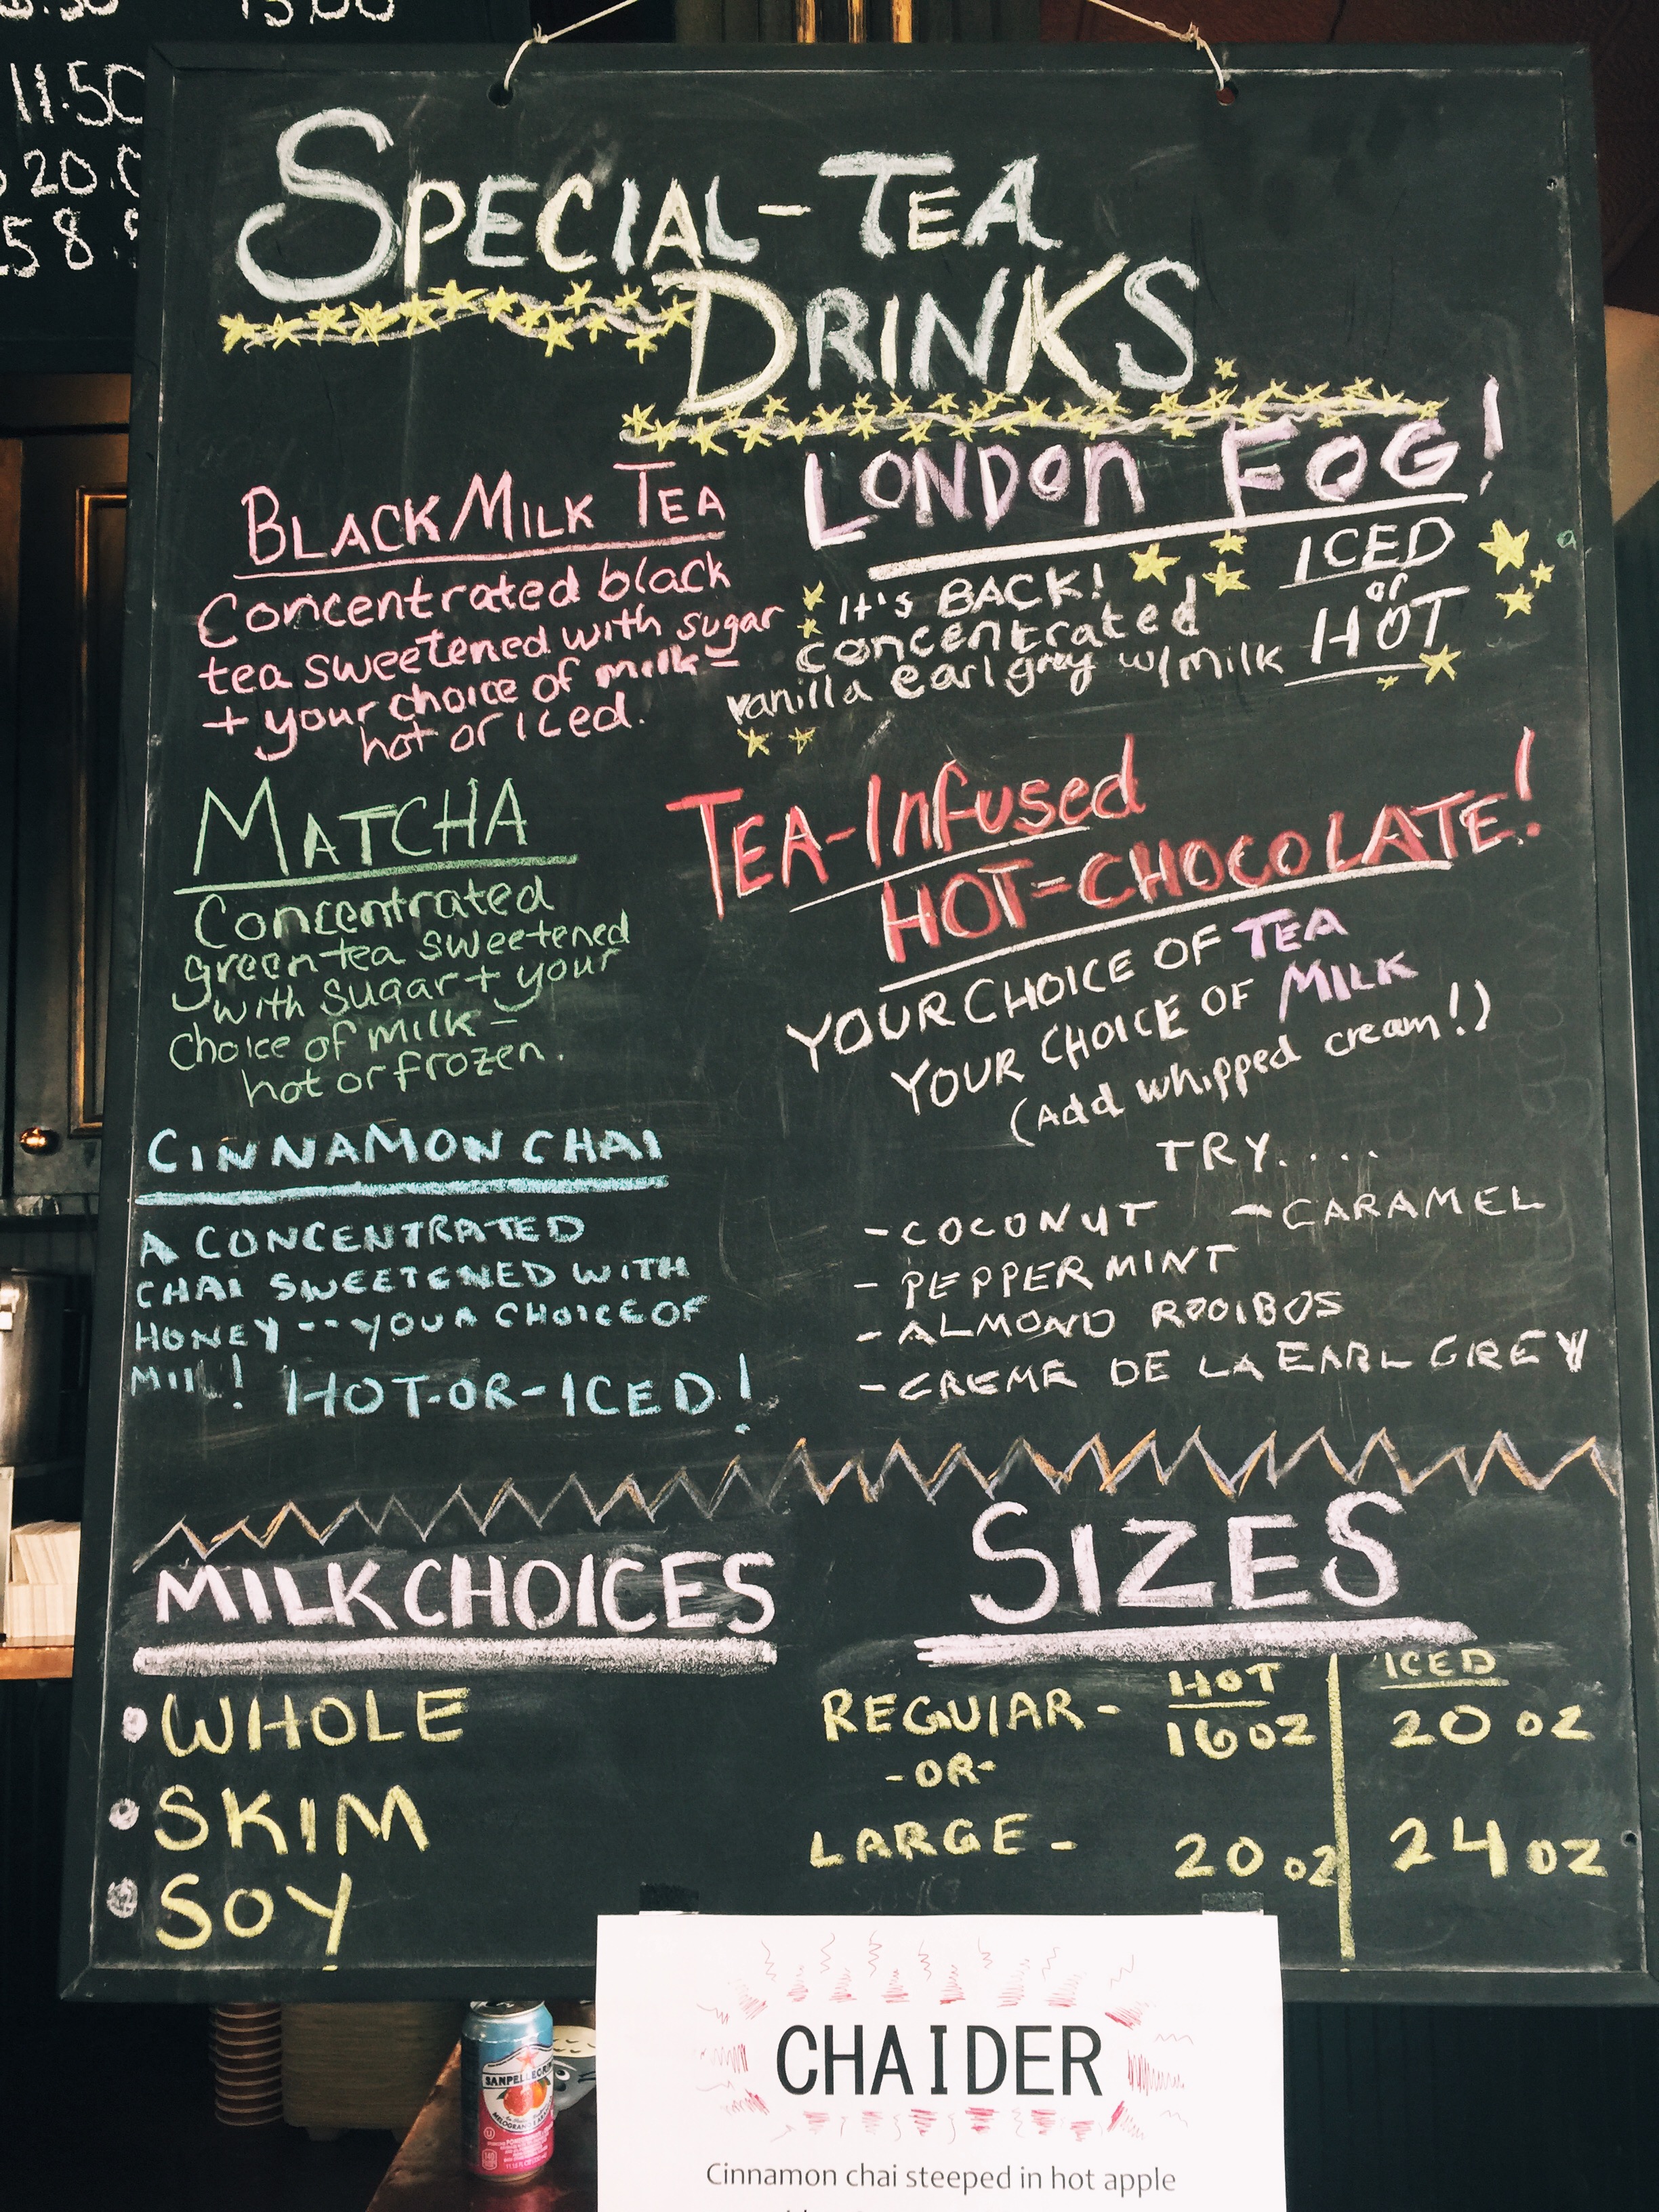 11.50
SPECIAL-TEA
DRINKS
BLACK MILK TEA
Concentrated black
tea sweetened with sugar
+ your choice of milk-
hot or iced.
MATCHA
Concentrated
green tea sweetened
with sugar + your
choice of milk -
hot or frozen.
CINNAMON CHAI
A CONCENTRATED
CHAI SWEETENED WITH
HONEY -- YOUR CHOICE OF
MILK! HOT-OR-ICED!
LONDON FOG!
It's BACK!
concentrated
vanilla earl grey w/milk
ICED
or
HOT
TEA-Infused
HOT-CHOCOLATE!
YOUR CHOICE OF TEA
YOUR CHOICE OF MILK
(Add whipped cream!)
TRY....
-COCONUT -CARAMEL
- PEPPERMINT
- ALMOND ROOIBOS
-CREME DE LA EARL GREY
MILK CHOICES
WHOLE
SKIM
SOY
SIZES
HOT ICED
REGULAR- 16 oz 20 oz
-OR-
LARGE- 20 oz 24 oz
CHAIDER
Cinnamon chai steeped in hot apple
SANPELLEGRINO